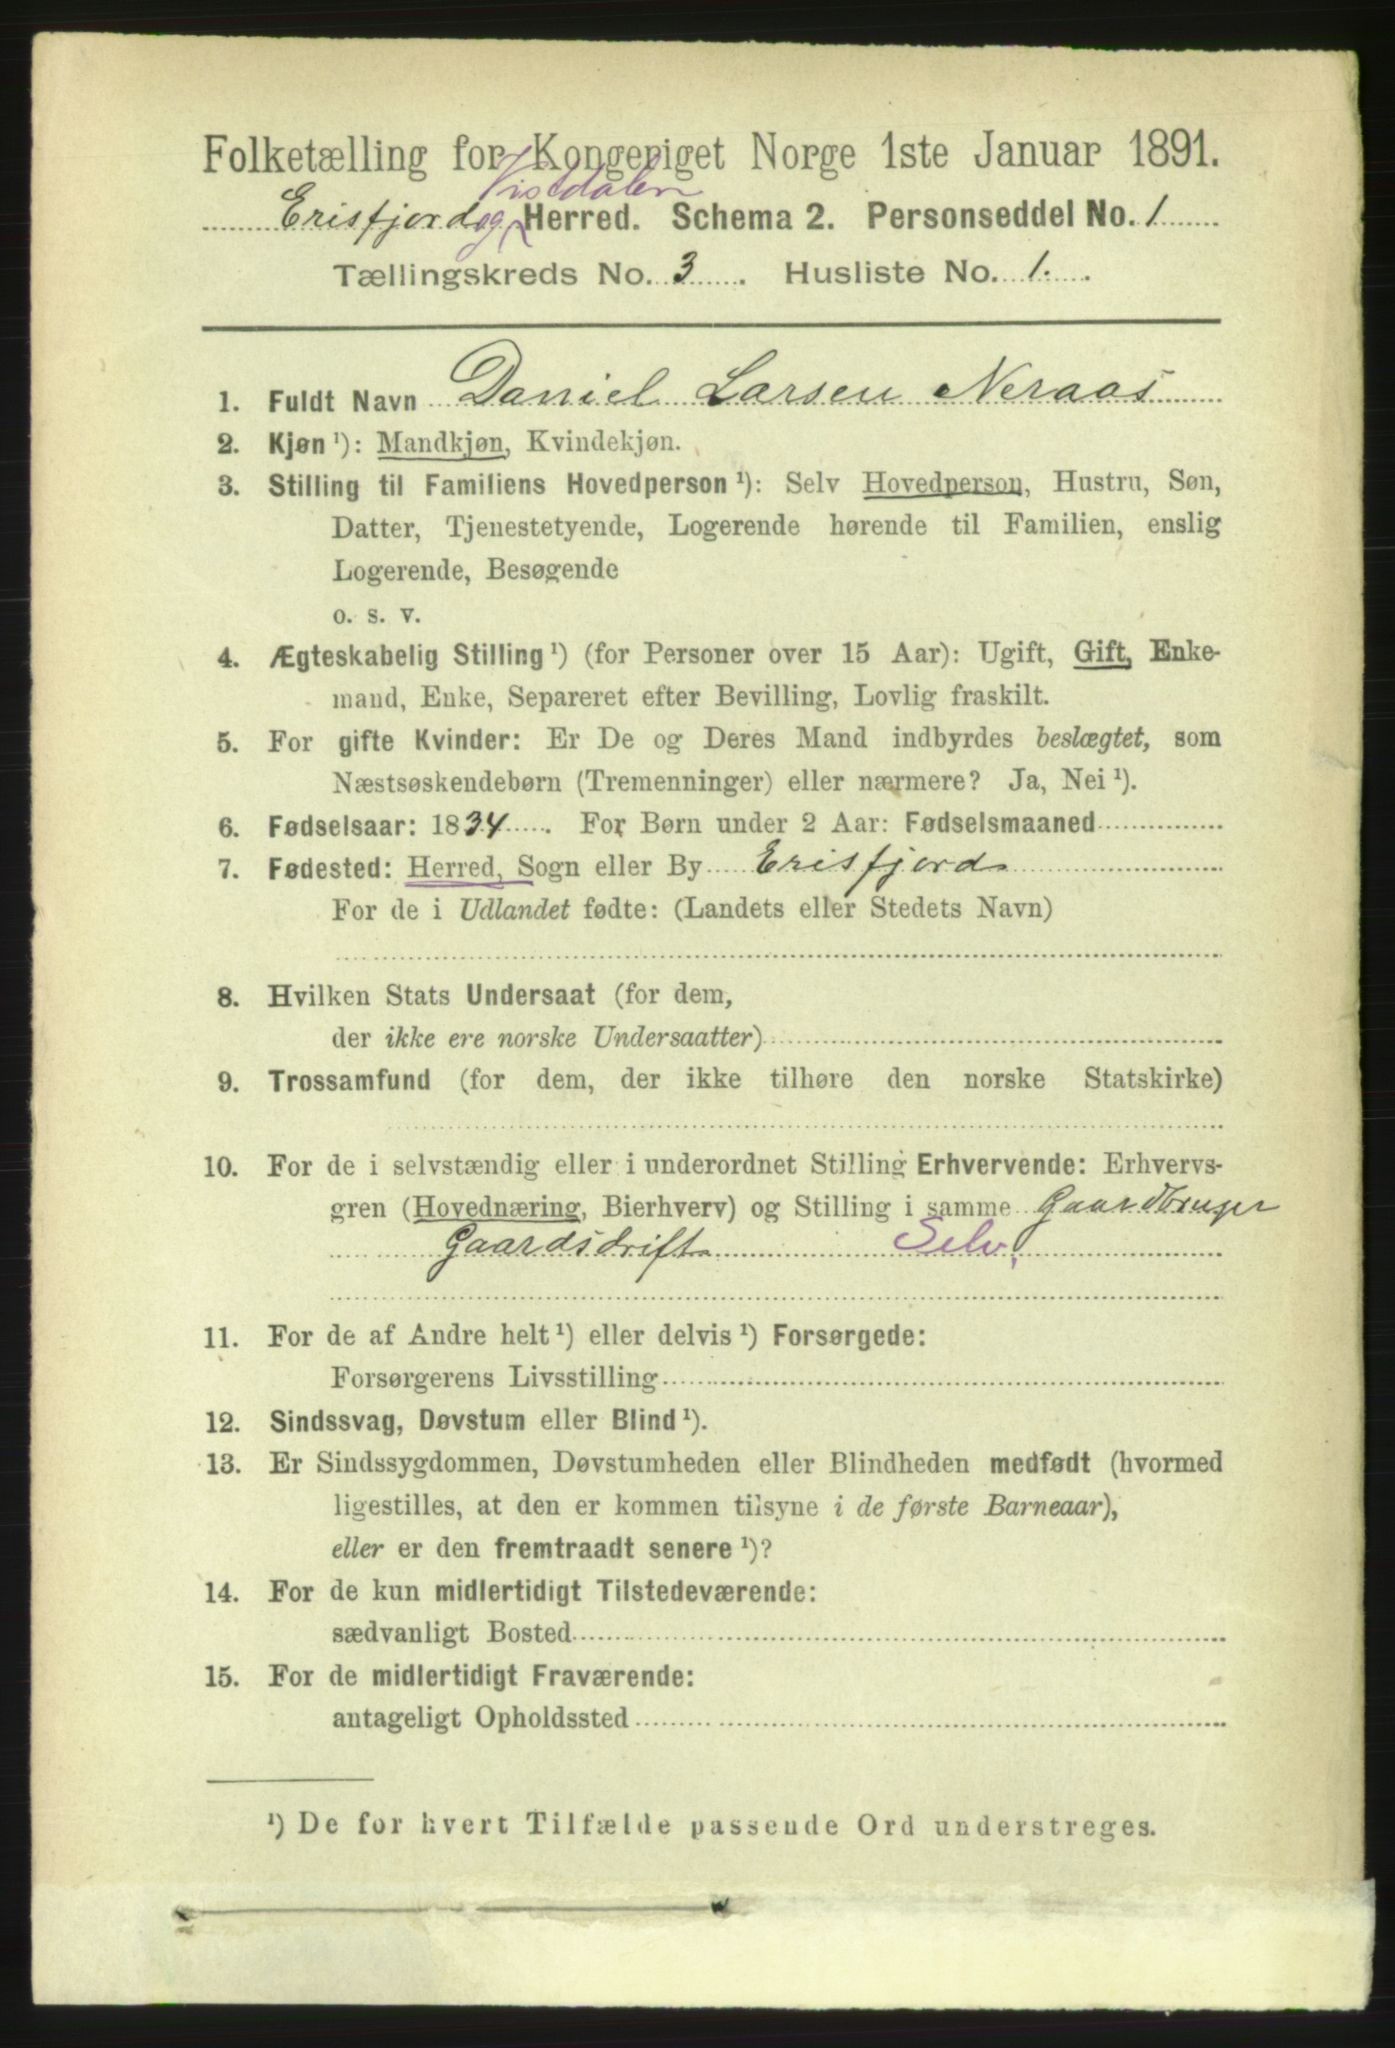 Folketælling for Kongeriget Norge 1ste Januar 1891.
Vistdalen
Erisfjord og Herred. Schema 2. Personseddel No. 1
Tællingskreds No. 3. Husliste No. 1.
1. Fuldt Navn Daniel Larsen Neraas
2. Kjøn ¹): Mandkjøn, Kvindekjøn.
3. Stilling til Familiens Hovedperson ¹): Selv Hovedperson, Hustru, Søn,
Datter, Tjenestetyende, Logerende hørende til Familien, enslig
Logerende, Besøgende
o. s. v.
4. Ægteskabelig Stilling ¹) (for Personer over 15 Aar): Ugift, Gift, Enke-
mand, Enke, Separeret efter Bevilling, Lovlig fraskilt.
5. For gifte Kvinder: Er De og Deres Mand indbyrdes beslægtet, som
Næstsøskendebørn (Tremenninger) eller nærmere? Ja, Nei ¹).
6. Fødselsaar: 1834. For Børn under 2 Aar: Fødselsmaaned
7. Fødested: Herred, Sogn eller By Erisfjord
For de i Udlandet fødte: (Landets eller Stedets Navn)
8. Hvilken Stats Undersaat (for dem,
der ikke ere norske Undersaatter)
9. Trossamfund (for dem, der ikke tilhøre den norske Statskirke)
10. For de i selvstændig eller i underordnet Stilling Erhvervende: Erhvervs-
gren (Hovednæring, Bierhverv) og Stilling i samme Gaardbruger
Gaardsdrift Selv.
11. For de af Andre helt ¹) eller delvis ¹) Forsørgede:
Forsørgerens Livsstilling
12. Sindssvag, Døvstum eller Blind ¹).
13. Er Sindssygdommen, Døvstumheden eller Blindheden medfødt (hvormed
ligestilles, at den er kommen tilsyne i de første Barneaar),
eller er den fremtraadt senere ¹)?
14. For de kun midlertidigt Tilstedeværende:
sædvanligt Bosted
15. For de midlertidigt Fraværende:
antageligt Opholdssted
¹) De for hvert Tilfælde passende Ord understreges.